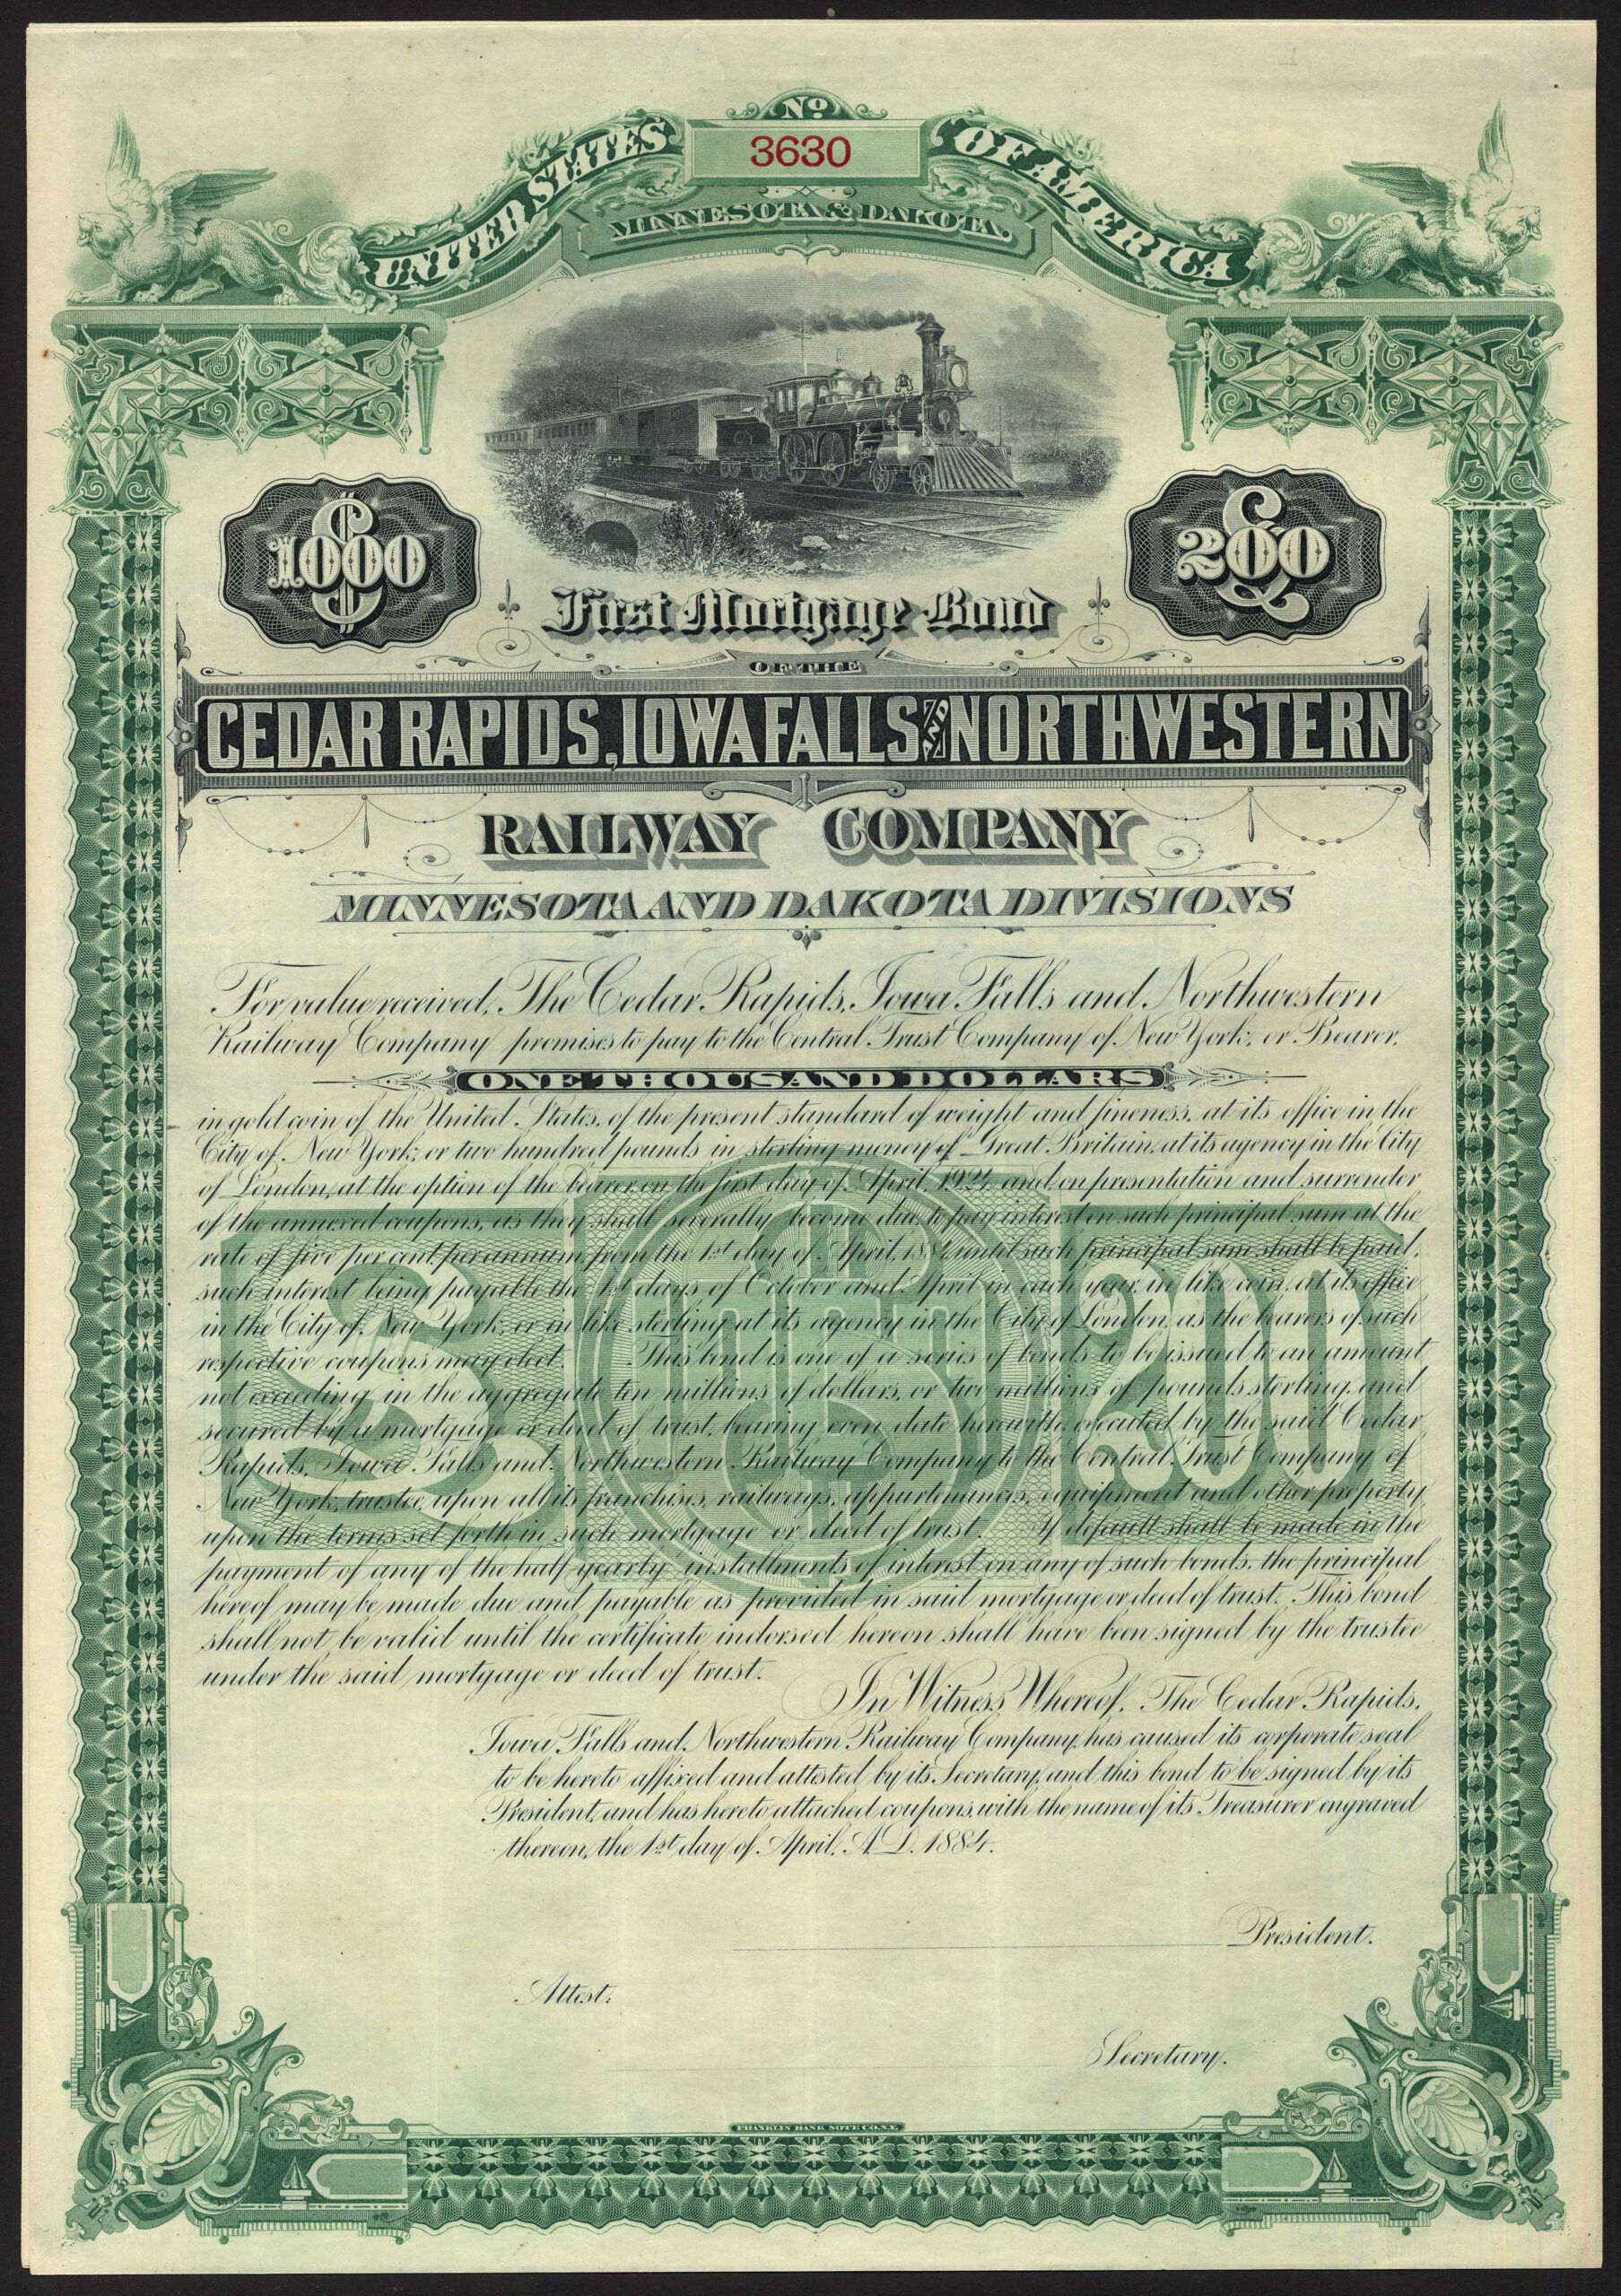 Nº
3630
UNITED STATES OF AMERICA
MINNESOTA & DAKOTA.
$1000
£200
First Mortgage Bond
OF THE
CEDAR RAPIDS, IOWA FALLS AND NORTHWESTERN
RAILWAY COMPANY
MINNESOTA AND DAKOTA DIVISIONS
For value received, The Cedar Rapids, Iowa Falls and Northwestern
Railway Company promises to pay to the Central Trust Company of New York, or Bearer,
ONE THOUSAND DOLLARS
in gold coin of the United States, of the present standard of weight and fineness, at its office in the
City of New York; or two hundred pounds in sterling money of Great Britain, at its agency in the City
of London, at the option of the bearer, on the first day of April, 1924, and, on presentation and surrender
of the annexed coupons, as they shall severally become due, to pay interest on such principal sum at the
rate of five per cent. per annum from the 1st day of April, 1884, until such principal sum shall be paid,
such interest being payable the 1st days of October and April in each year, in like coin, at its office
in the City of New York, or in like sterling at its agency in the City of London, as the bearers of such
respective coupons may elect. This bond is one of a series of bonds to be issued to an amount
not exceeding in the aggregate ten millions of dollars, or two millions of pounds sterling, and
secured by a mortgage or deed of trust, bearing even date herewith, executed by the said Cedar
Rapids, Iowa Falls and Northwestern Railway Company to the Central Trust Company of
New York, trustee, upon all its franchises, railways, appurtenances, equipment and other property
upon the terms set forth in such mortgage or deed of trust. If default shall be made in the
payment of any of the half-yearly installments of interest on any of such bonds, the principal
hereof may be made due and payable as provided in said mortgage or deed of trust. This bond
shall not be valid until the certificate indorsed hereon shall have been signed by the trustee
under the said mortgage or deed of trust.
In Witness Whereof, The Cedar Rapids,
Iowa Falls and Northwestern Railway Company, has caused its corporate seal
to be hereto affixed and attested by its Secretary, and this bond to be signed by its
President, and has hereto attached coupons, with the name of its Treasurer engraved
thereon, the 1st day of April, A.D. 1884.
President.
Attest:
Secretary.
FRANKLIN BANK NOTE CO. N.Y.
$1000
£200